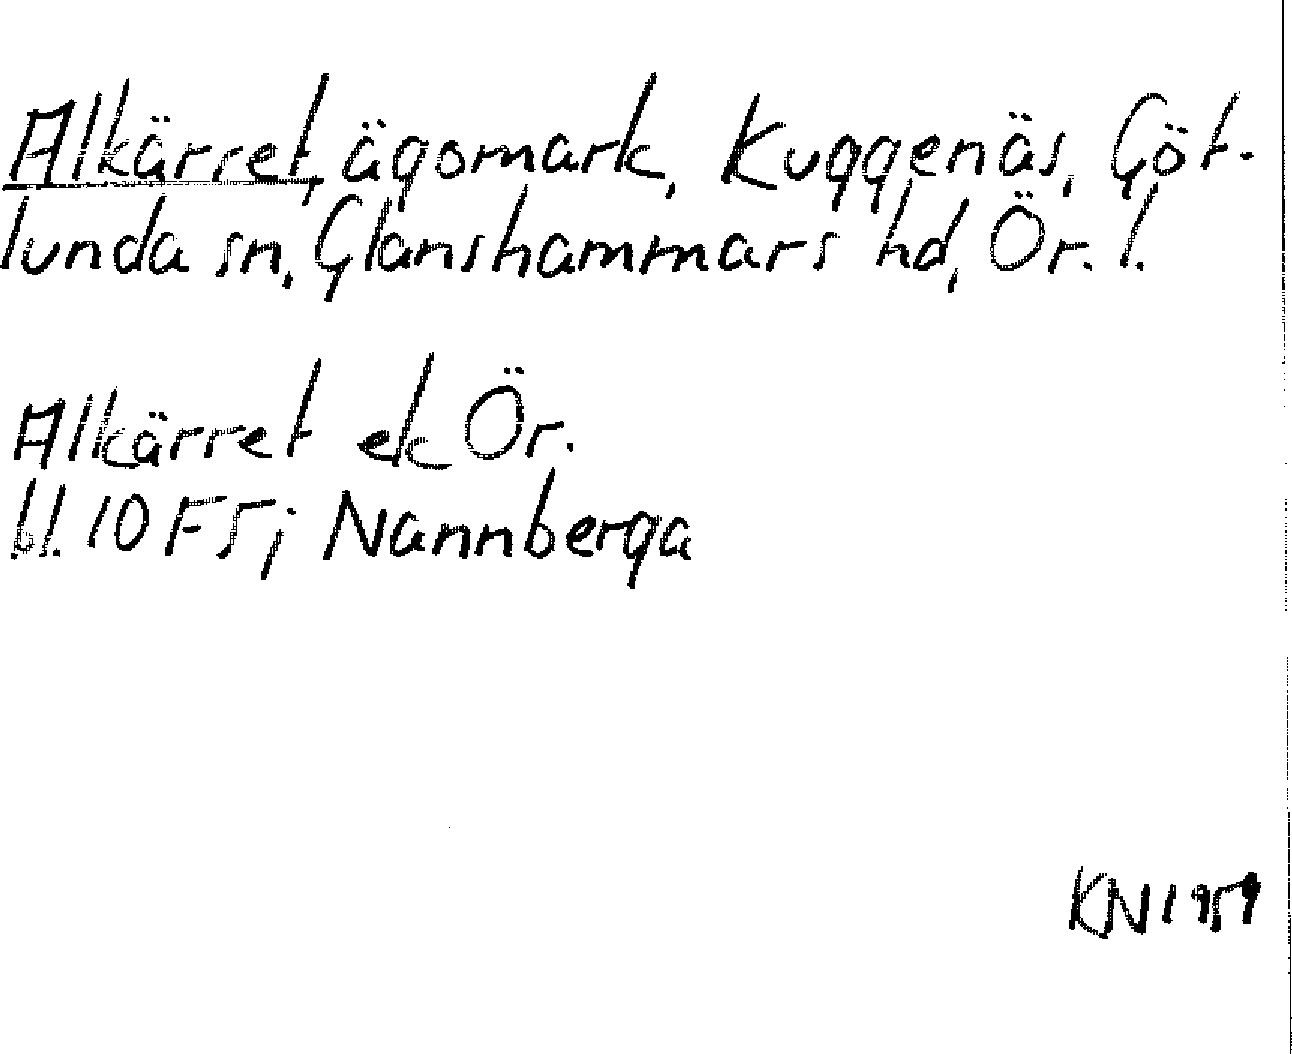 Alkärret, ägomark, Kuggenäs, Göt-
lunda sn, Glanshammars hd, Ör. l.
Alkärret ek Ör.
bl. 10 F 5; Nannberga
KN 1959